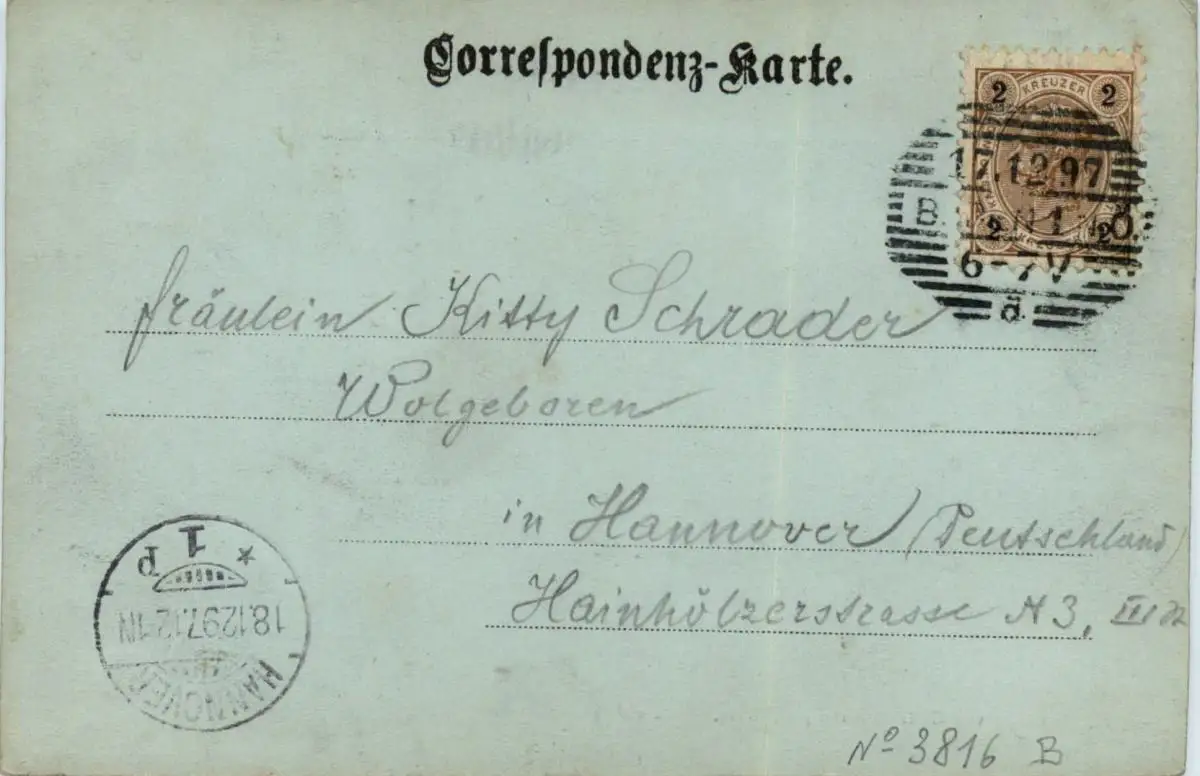 Correspondenz-Karte.
2 KREUZER 2
17.12.97
B. 1
2 2
6-7V
d
Fräulein Kitty Schrader
Wolgeboren
in Hannover (Deutschland)
Hainhölzerstrasse N 3, III
HANNOVER
18.12.97.12-1N
1
d
*
Nº 3816 B